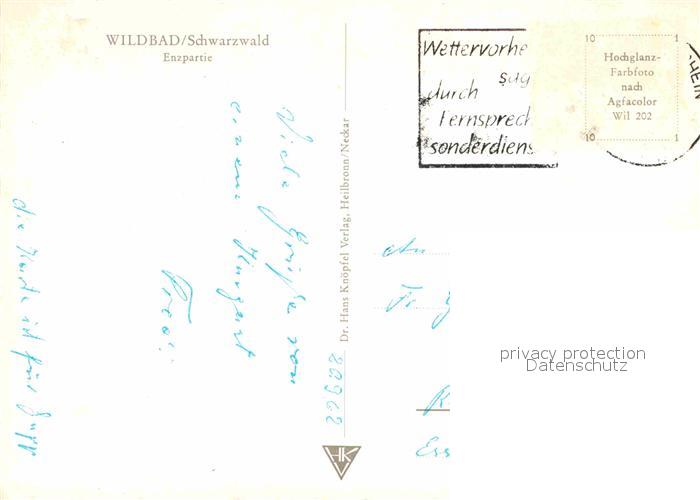 WILDBAD/Schwarzwald
Enzpartie
Viele Grüße von
einem Kurgast
die Karte ist für
Dr. Hans Knöpfel Verlag, Heilbronn/Neckar
HK
V
Wettervorhe
sag
durch
Fernsprech
sonderdiens
10 1
Hochglanz-
Farbfoto
nach
Agfacolor
Wil 202
10 1
HEIM
An
Fr
K
Ess
privacy protection
Datenschutz